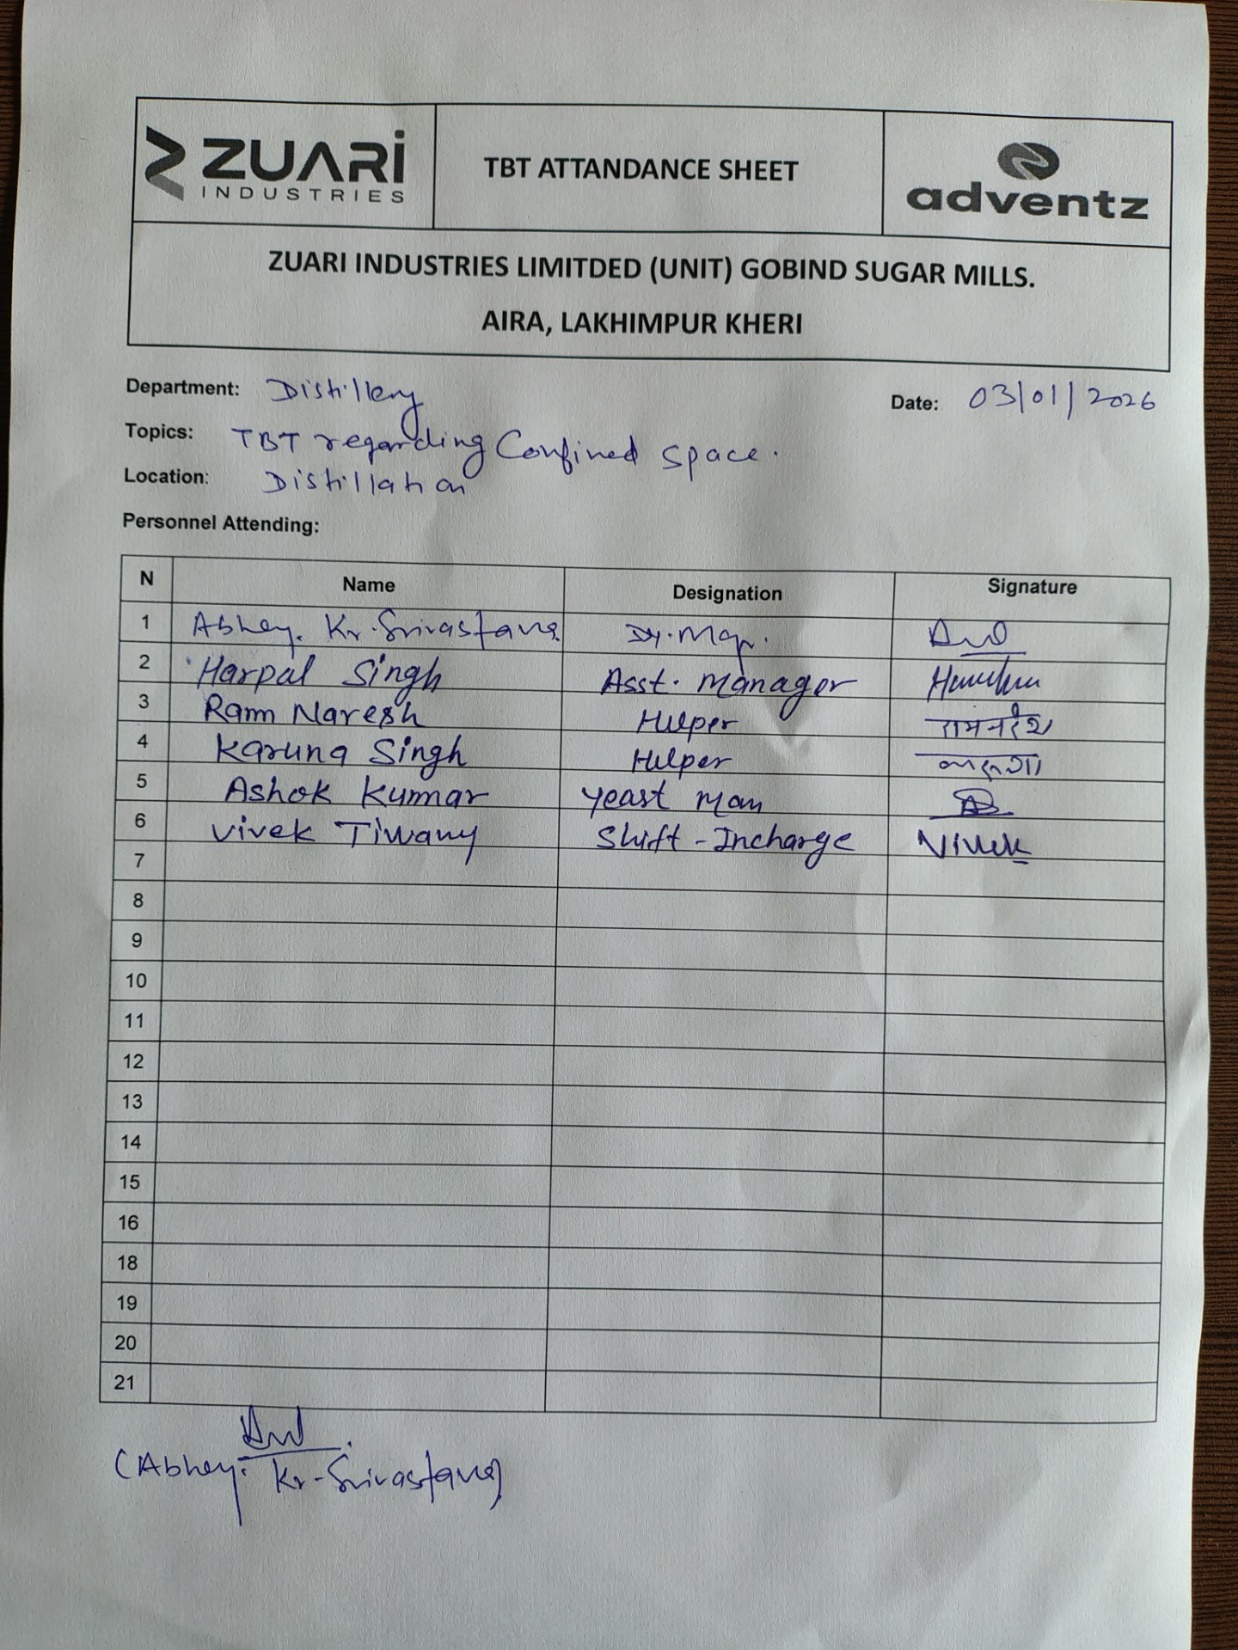 ZUARI
INDUSTRIES
TBT ATTANDANCE SHEET
adventz
ZUARI INDUSTRIES LIMITDED (UNIT) GOBIND SUGAR MILLS.
AIRA, LAKHIMPUR KHERI
Department: Distillery
Date: 03/01/2026
Topics: TBT regarding Confined space.
Location: Distillation
Personnel Attending:
N Name Designation Signature
1 Abhey. Kr. Srivastava Dy. Mgr.
2 Harpal Singh Asst. Manager
3 Ram Naresh Helper रामनरेश
4 Karuna Singh Helper
5 Ashok Kumar Yeast Man
6 Vivek Tiwary Shift-Incharge Vivek
7
8
9
10
11
12
13
14
15
16
18
19
20
21
(Abhey. Kr-Srivastava)